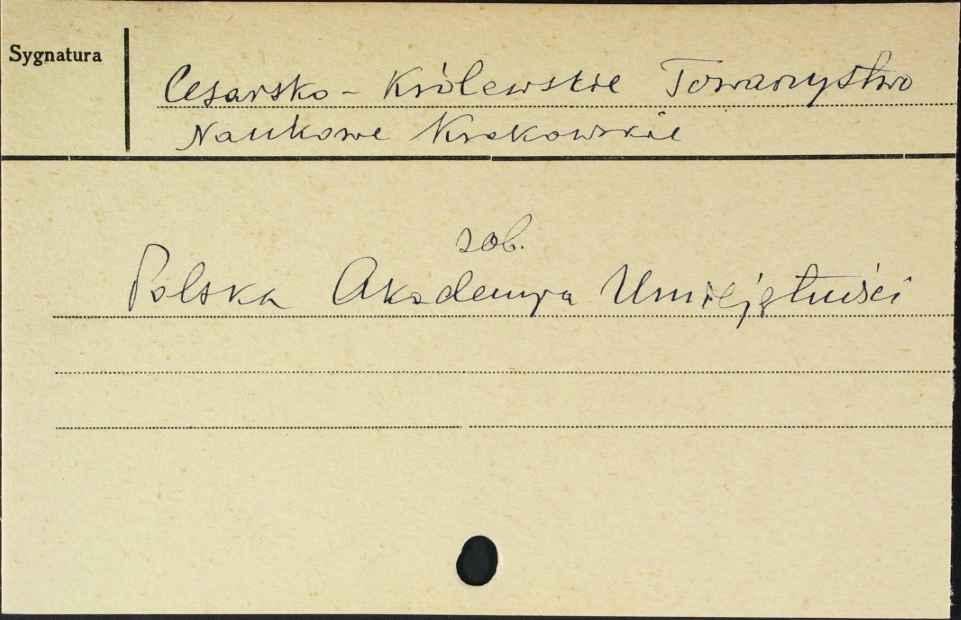 Sygnatura
Cesarsko-Królewskie Towarzystwo
Naukowe Krakowskie
zob.
Polska Akademya Umiejętności